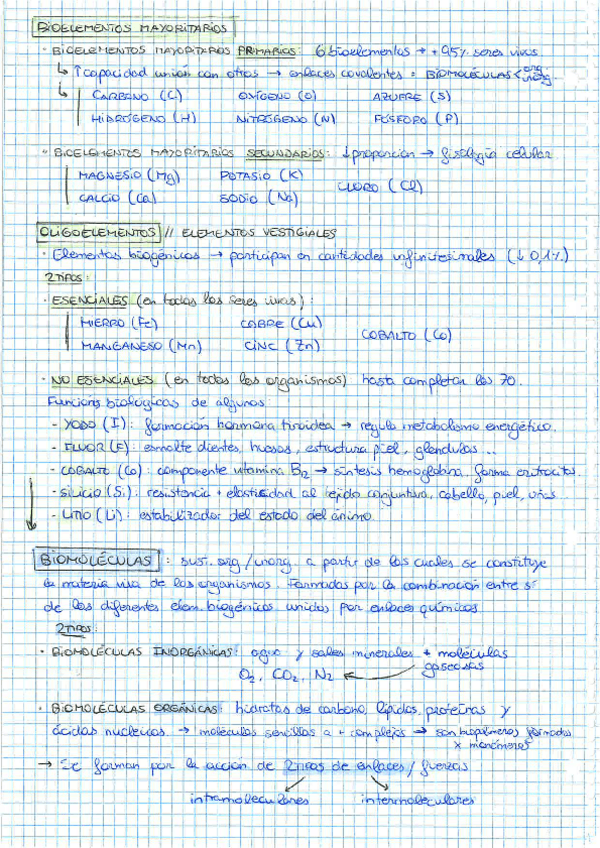 BIOELEMENTOS MAYORITARIOS
· BIOELEMENTOS MAYORITARIOS PRIMARIOS: 6 bioelementos → + 95% seres vivos
↳ ↑ capacidad unión con otros → enlaces covalentes = BIOMOLÉCULAS < org. inorg.
↳ CARBONO (C) OXÍGENO (O) AZUFRE (S)
HIDRÓGENO (H) NITRÓGENO (N) FÓSFORO (P)
· BIOELEMENTOS MAYORITARIOS SECUNDARIOS: ↓ proporción → fisiología celular
MAGNESIO (Mg) POTASIO (K) CLORO (Cl)
CALCIO (Ca) SODIO (Na)
OLIGOELEMENTOS // ELEMENTOS VESTIGIALES
· Elementos biogénicos → participan en cantidades infinitesimales (↓ 0,1%)
2 TIPOS:
· ESENCIALES (en todos los seres vivos):
HIERRO (Fe) COBRE (Cu) COBALTO (Co)
MANGANESO (Mn) CINC (Zn)
· NO ESENCIALES (en todos los organismos) hasta completar los 70.
Funcions biológicas de algunos:
- YODO (I): formación hormona tiroidea → regula metabolismo energético.
- FLUOR (F): esmalte dientes, huesos, estructura piel, glándulas...
- COBALTO (Co): componente vitamina B12 → síntesis hemoglobina, forma eritrocitos.
- SILICIO (Si): resistencia + elasticidad al tejido conjuntivo, cabello, piel, uñas...
- LITIO (Li): estabilizador del estado del ánimo.
BIOMOLÉCULAS: sust. org / inorg. a partir de las cuales se constituye
la materia viva de los organismos. Formadas por la combinación entre sí
de los diferentes elem. biogénicos unidos por enlaces químicos.
2 TIPOS:
· BIOMOLÉCULAS INORGÁNICAS: agua y sales minerales + moléculas
O2, CO2, N2 ← gaseosas
· BIOMOLÉCULAS ORGÁNICAS: hidratos de carbono, lípidos, proteínas y
ácidos nucleicos. → moléculas sencillas a + complejas → son biopolímeros formados
x monómeros
→ Se forman por la acción de 2 TIPOS de enlaces / fuerzas
intramoleculares intermoleculares